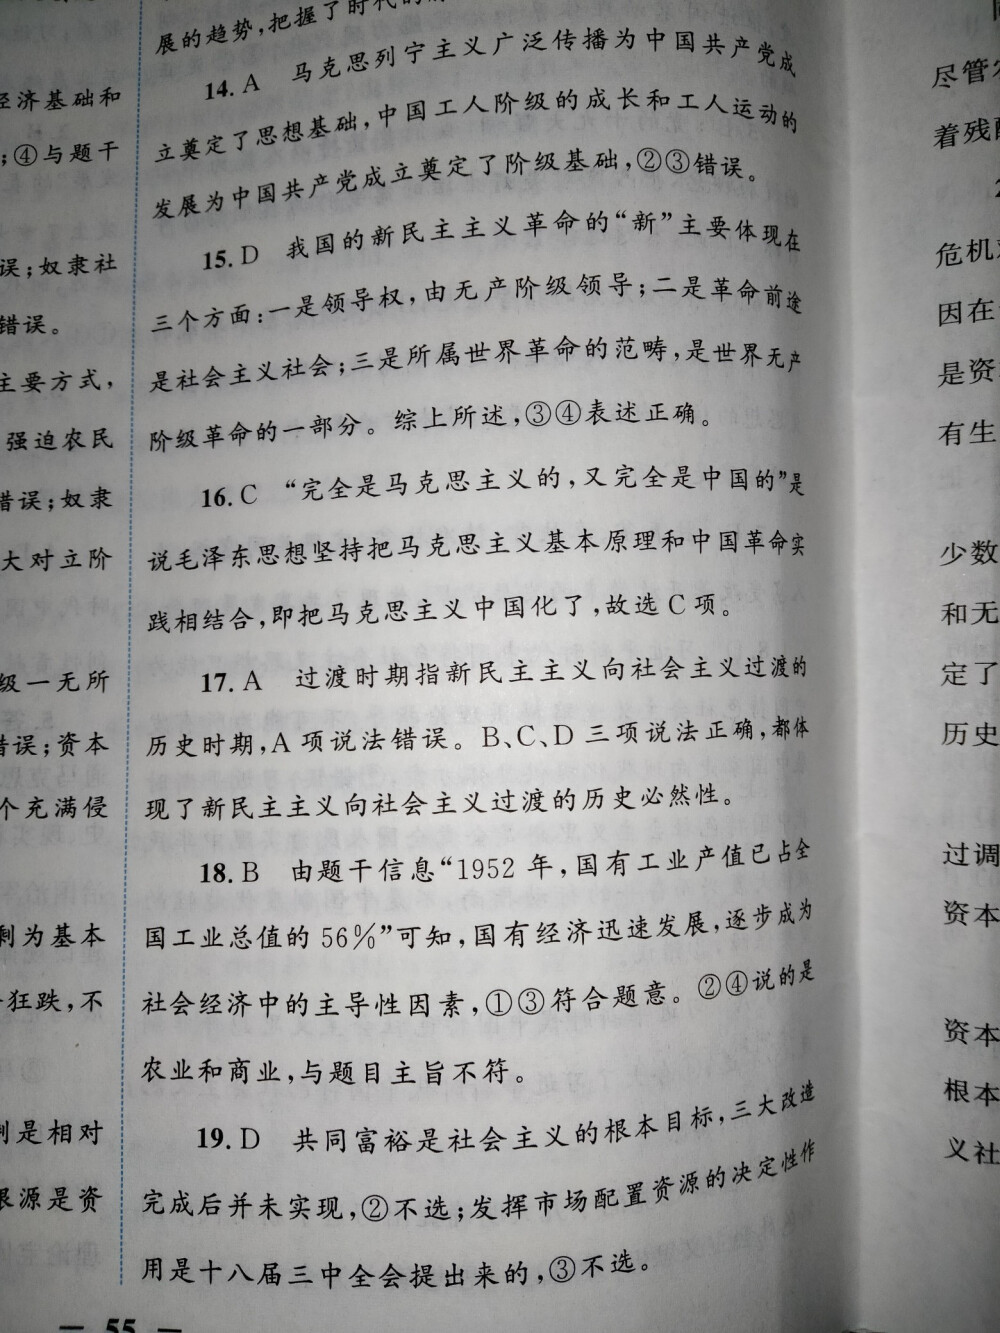 经济基础和
;④与题干
误;奴隶社
错误。
主要方式,
强迫农民
错误;奴隶
大对立阶
级一无所
错误;资本
个充满侵
剩为基本
狂跌,不
制是相对
根源是资
展的趋势,把握了时代的
14. A 马克思列宁主义广泛传播为中国共产党成
立奠定了思想基础,中国工人阶级的成长和工人运动的
发展为中国共产党成立奠定了阶级基础,②③错误。
15. D 我国的新民主主义革命的“新”主要体现在
三个方面:一是领导权,由无产阶级领导;二是革命前途
是社会主义社会;三是所属世界革命的范畴,是世界无产
阶级革命的一部分。综上所述,③④表述正确。
16. C “完全是马克思主义的,又完全是中国的”是
说毛泽东思想坚持把马克思主义基本原理和中国革命实
践相结合,即把马克思主义中国化了,故选C项。
17. A 过渡时期指新民主主义向社会主义过渡的
历史时期,A项说法错误。B、C、D三项说法正确,都体
现了新民主主义向社会主义过渡的历史必然性。
18. B 由题干信息“1952年,国有工业产值已占全
国工业总值的56%”可知,国有经济迅速发展,逐步成为
社会经济中的主导性因素,①③符合题意。②④说的是
农业和商业,与题目主旨不符。
19. D 共同富裕是社会主义的根本目标,三大改造
完成后并未实现,②不选;发挥市场配置资源的决定性作
用是十八届三中全会提出来的,③不选。
— 55 —
尽管
着残
危机
因在
是资
有生
少数
和无
定了
历史
过调
资本
资本
根本
义社